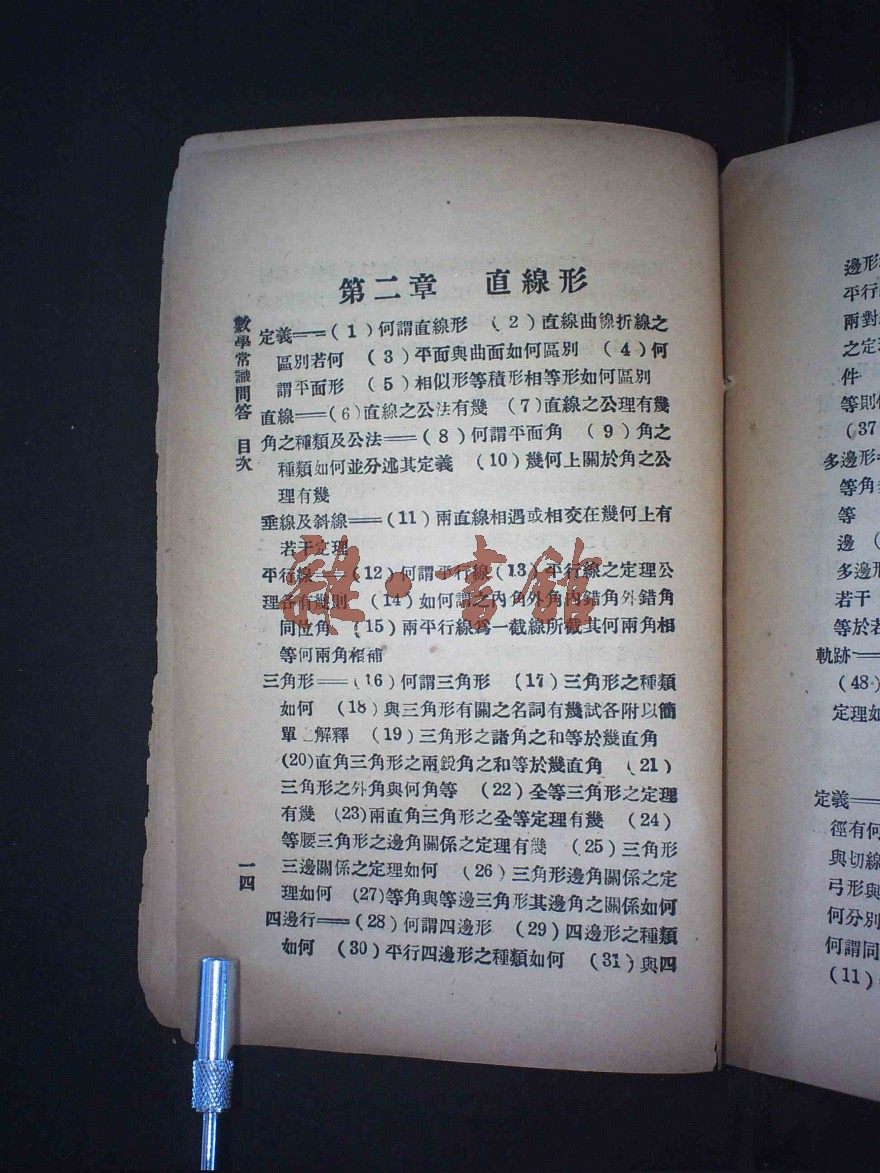 第二章 直線形
數學常識問答 目次
定義——(1)何謂直線形 (2)直線曲線折線之
區別若何 (3)平面與曲面如何區別 (4)何
謂平面形 (5)相似形等積形相等形如何區別
直線——(6)直線之公法有幾 (7)直線之公理有幾
角之種類及公法——(8)何謂平面角 (9)角之
種類如何並分述其定義 (10)幾何上關於角之公
理有幾
垂線及斜線——(11)兩直線相遇或相交在幾何上有
若干定理
平行線——(12)何謂平行線(13)平行線之定理公
理各有幾則 (14)如何謂之內角外角內錯角外錯角
同位角 (15)兩平行線爲一截線所截其何兩角相
等何兩角相補
三角形——(16)何謂三角形 (17)三角形之種類
如何 (18)與三角形有關之名詞有幾試各附以簡
單 解釋 (19)三角形之諸角之和等於幾直角
(20)直角三角形之兩銳角之和等於幾直角 (21)
三角形之外角與何角等 (22)全等三角形之定理
有幾 (23)兩直角三角形之全等定理有幾 (24)
等腰三角形之邊角關係之定理有幾 (25)三角形
三邊關係之定理如何 (26)三角形邊角關係之定
理如何 (27)等角與等邊三角形其邊角之關係如何
四邊行——(28)何謂四邊形 (29)四邊形之種類
如何 (30)平行四邊形之種類如何 (31)與四
一四
雜·書館
邊形
平行
兩對
之定
件
等則
(37
多邊形
等角
等
邊
多邊形
若干
等於
軌跡——
(48)
定理如
定義——
徑有何
與切線
弓形與
何分別
何謂同
(11)